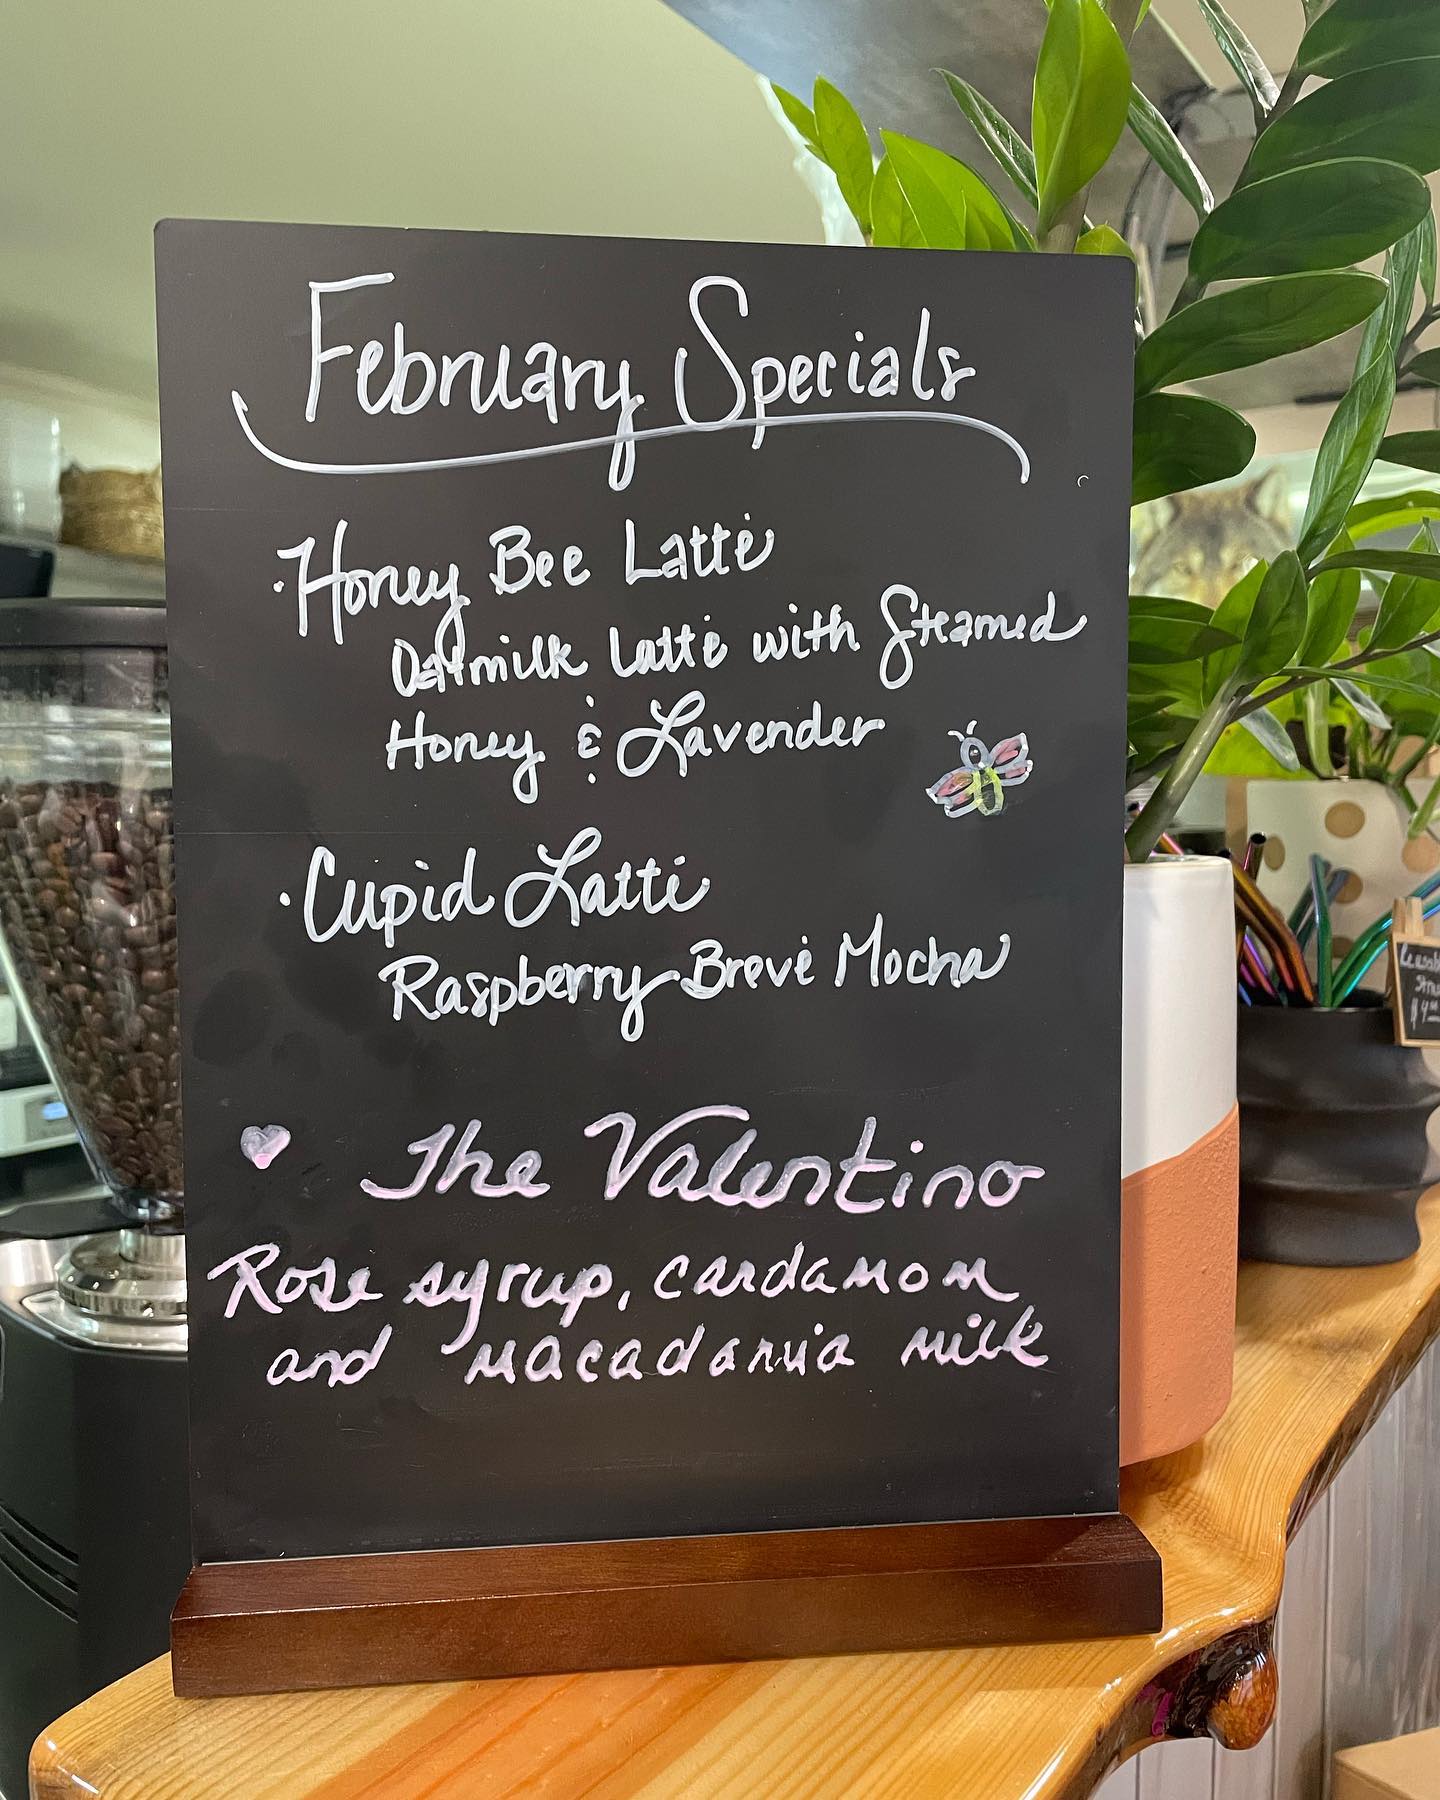 February Specials
· Honey Bee Latte
Oatmilk Latte with Steamed
Honey & Lavender
· Cupid Latte
Raspberry Brevé Mocha
The Valentino
Rose syrup, cardamom
and macadamia milk